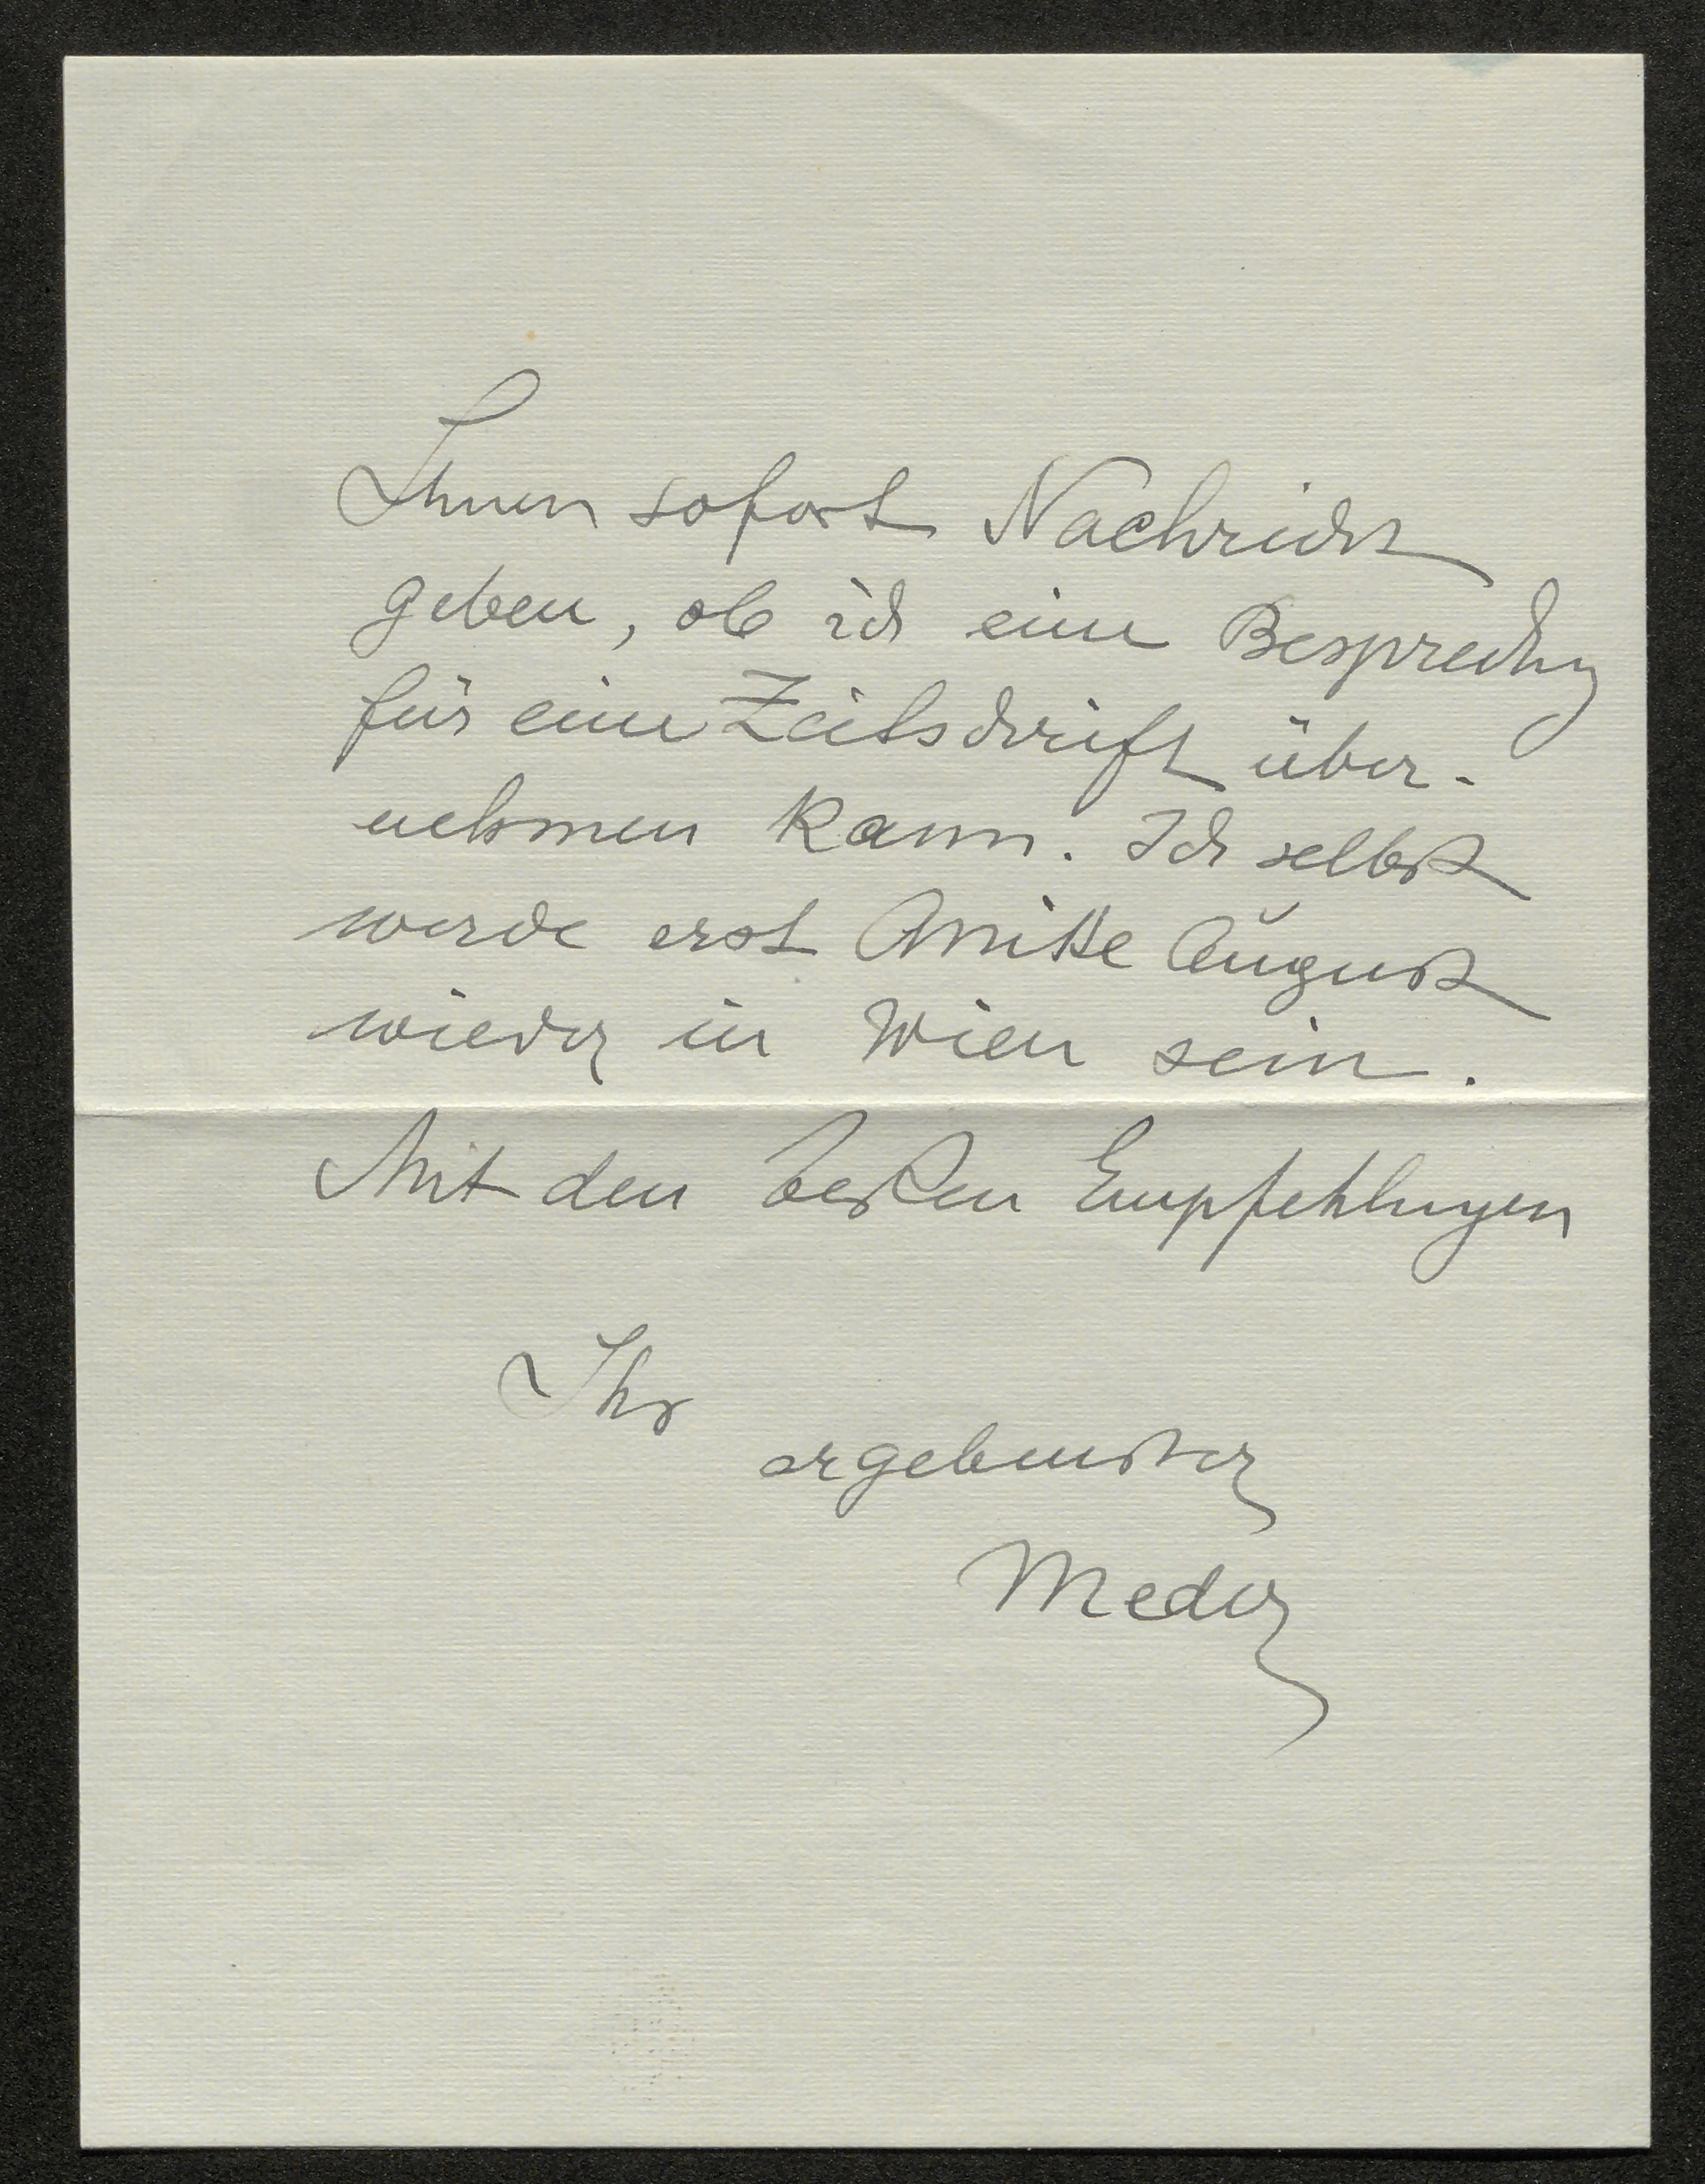 Ihnen sofort Nachricht
geben, ob ich eine Besprechung
für eine Zeitschrift über-
nehmen kann. Ich selbst
werde erst Mitte August
wieder in Wien sein.
Mit den besten Empfehlungen
Ihr
ergebenster
Meder